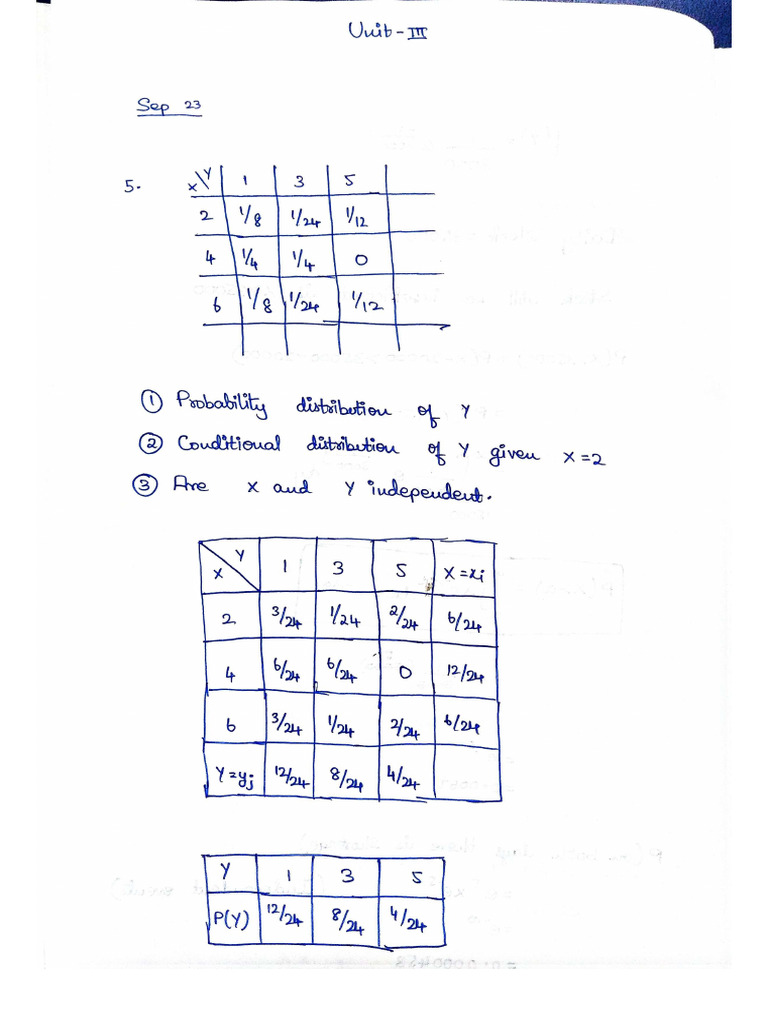 Unit - III
Sep 23
5.
X\Y 1 3 5
2 1/8 1/24 1/12
4 1/4 1/4 0
6 1/8 1/24 1/12
① Probability distribution of Y
② Conditional distribution of Y given X=2
③ Are X and Y independent.
X\Y 1 3 5 X=xi
2 3/24 1/24 2/24 6/24
4 6/24 6/24 0 12/24
6 3/24 1/24 2/24 6/24
Y=yj 12/24 8/24 4/24
Y 1 3 5
P(Y) 12/24 8/24 4/24